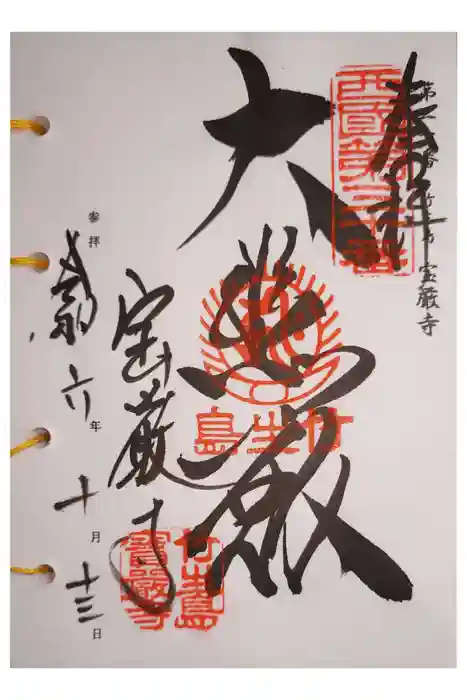 第三十番 竹生島 宝厳寺
奉拝
西國第三十番
大悲殿
竹生島
宝厳寺
竹生島
寳厳寺
参拝 令和六年十月十三日